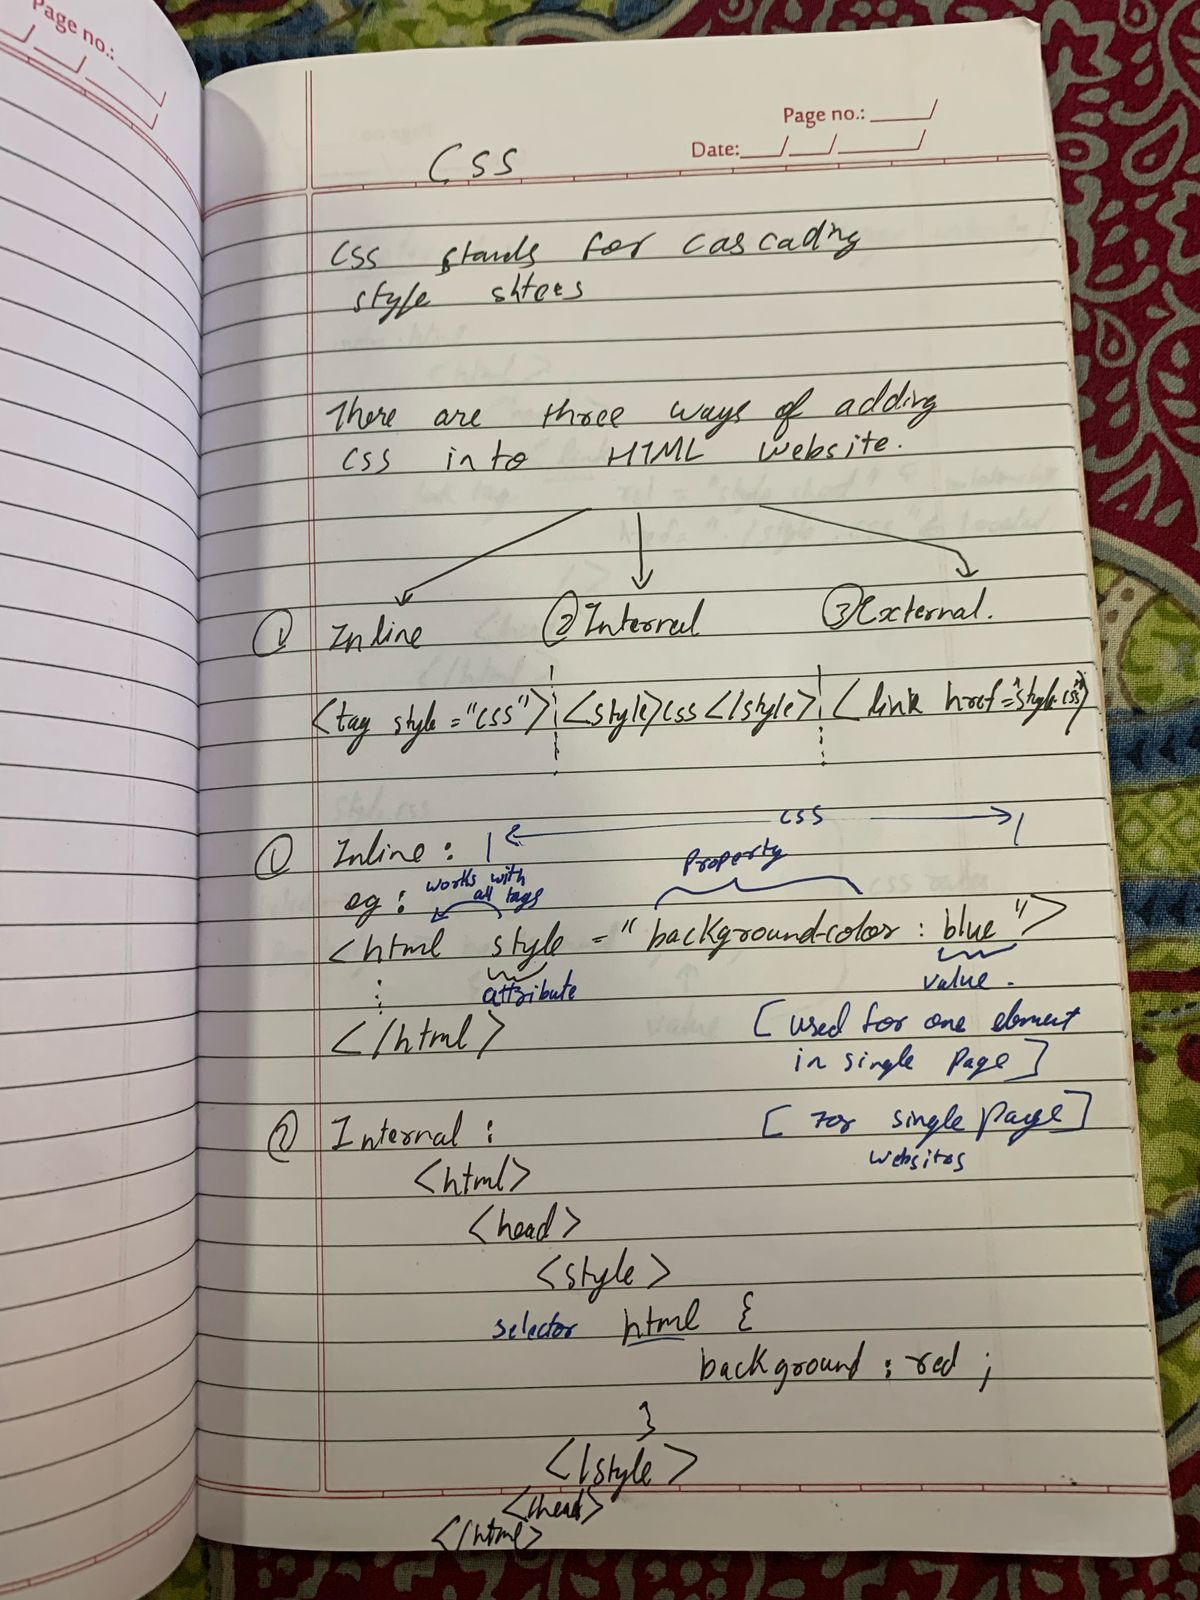 Page no.:
Page no.:
Date:
CSS
CSS stands for cascading
style shtees
There are three ways of adding
CSS into HTML website.
① Inline ② Internal ③ External.
<tag style="css"> <style>css</style> <link href="style.css">
① Inline : CSS
eg : works with all tags Property
<html style = "background-color : blue">
attribute value.
</html> [used for one element
in single page]
② Internal : [For single page]
websites
<html>
<head>
<style>
selector html {
background : red ;
}
</style>
</head>
</html>